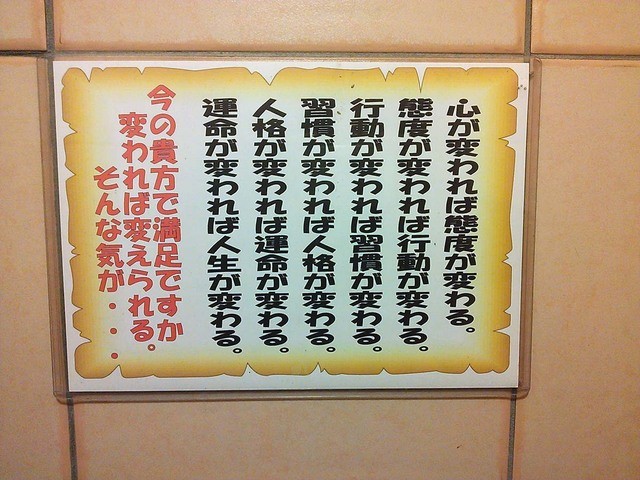 心が変われば態度が変わる。
態度が変われば行動が変わる。
行動が変われば習慣が変わる。
習慣が変われば人格が変わる。
人格が変われば運命が変わる。
運命が変われば人生が変わる。
今の貴方で満足ですか
変われば変えられる。
そんな気が・・・